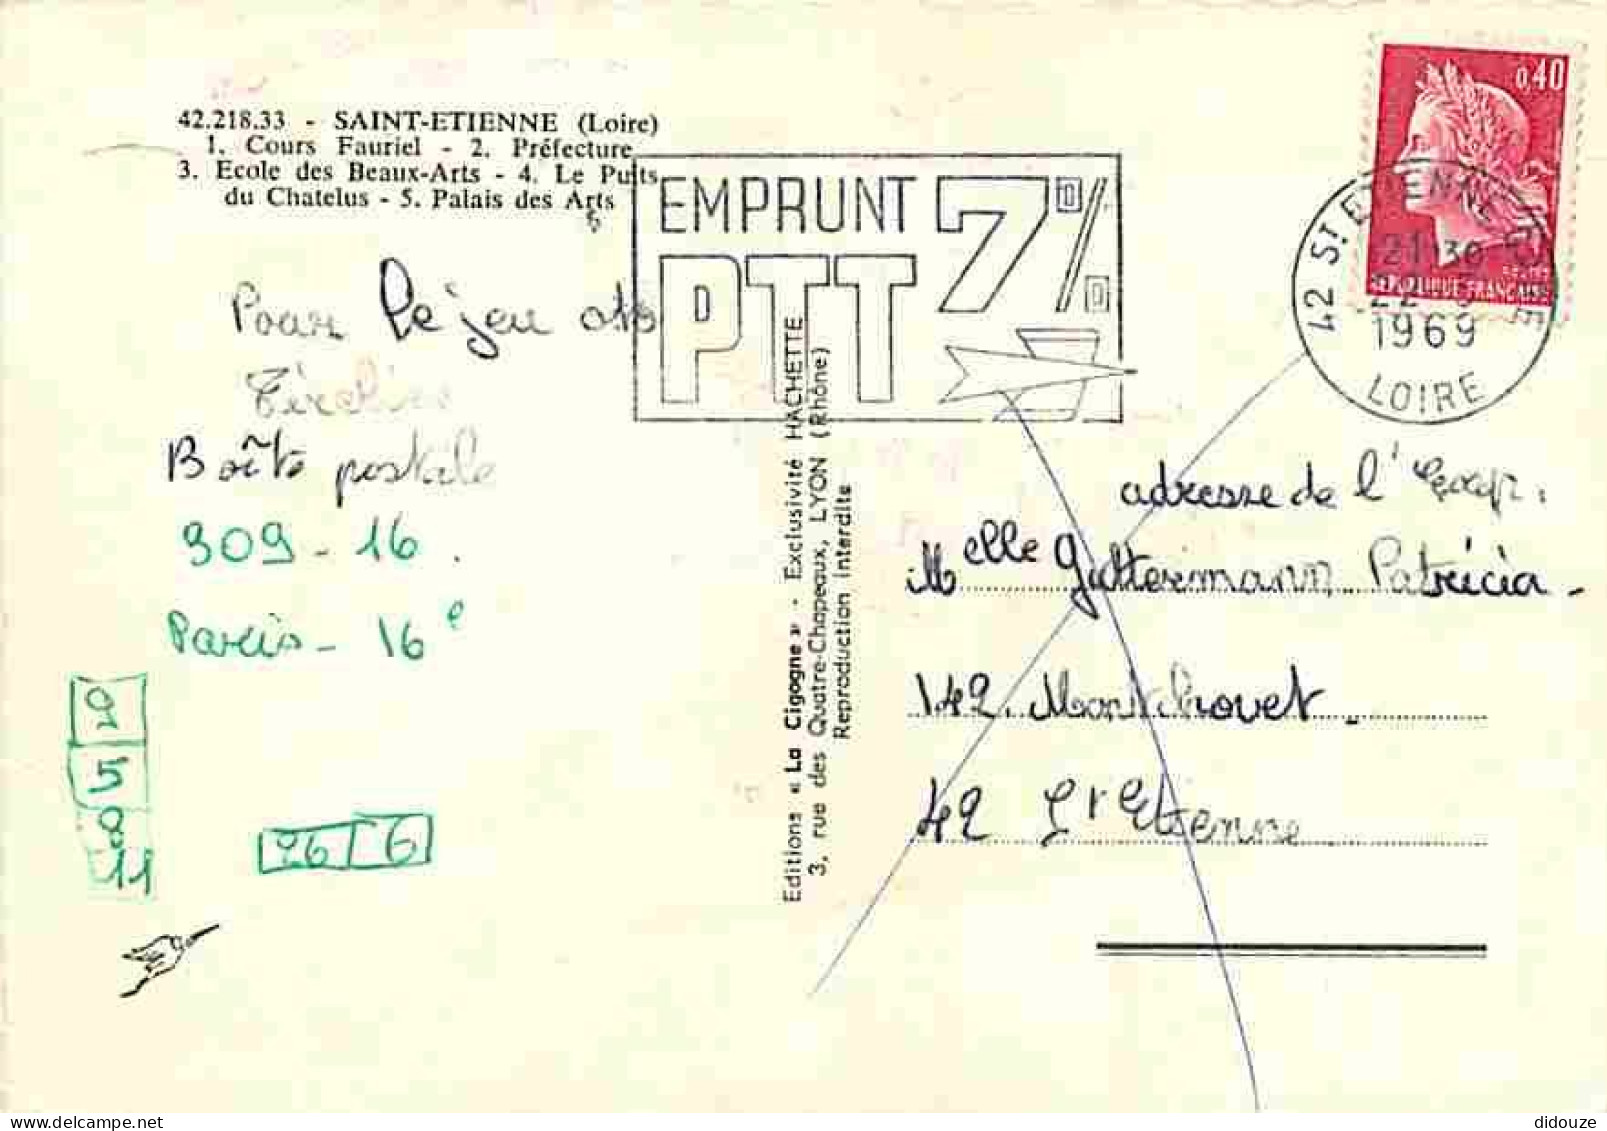 42.218.33 - SAINT-ETIENNE (Loire)
1. Cours Fauriel - 2. Préfecture
3. Ecole des Beaux-Arts - 4. Le Puits
du Chatelus - 5. Palais des Arts
EMPRUNT 7%
PTT
0,40
REPUBLIQUE FRANÇAISE
42 ST ETIENNE
21H30
1969
LOIRE
Pour le jeu des
Boîte postale
309-16.
Paris - 16e
20
5
11
26 6
Editions « La Cigogne » - Exclusivité HACHETTE
3, rue des Quatre-Chapeaux, LYON (Rhône)
Reproduction interdite
adresse de l'exp.
Melle Guttermann Patricia -
142. Montchovet.
42 St Etienne
didouze